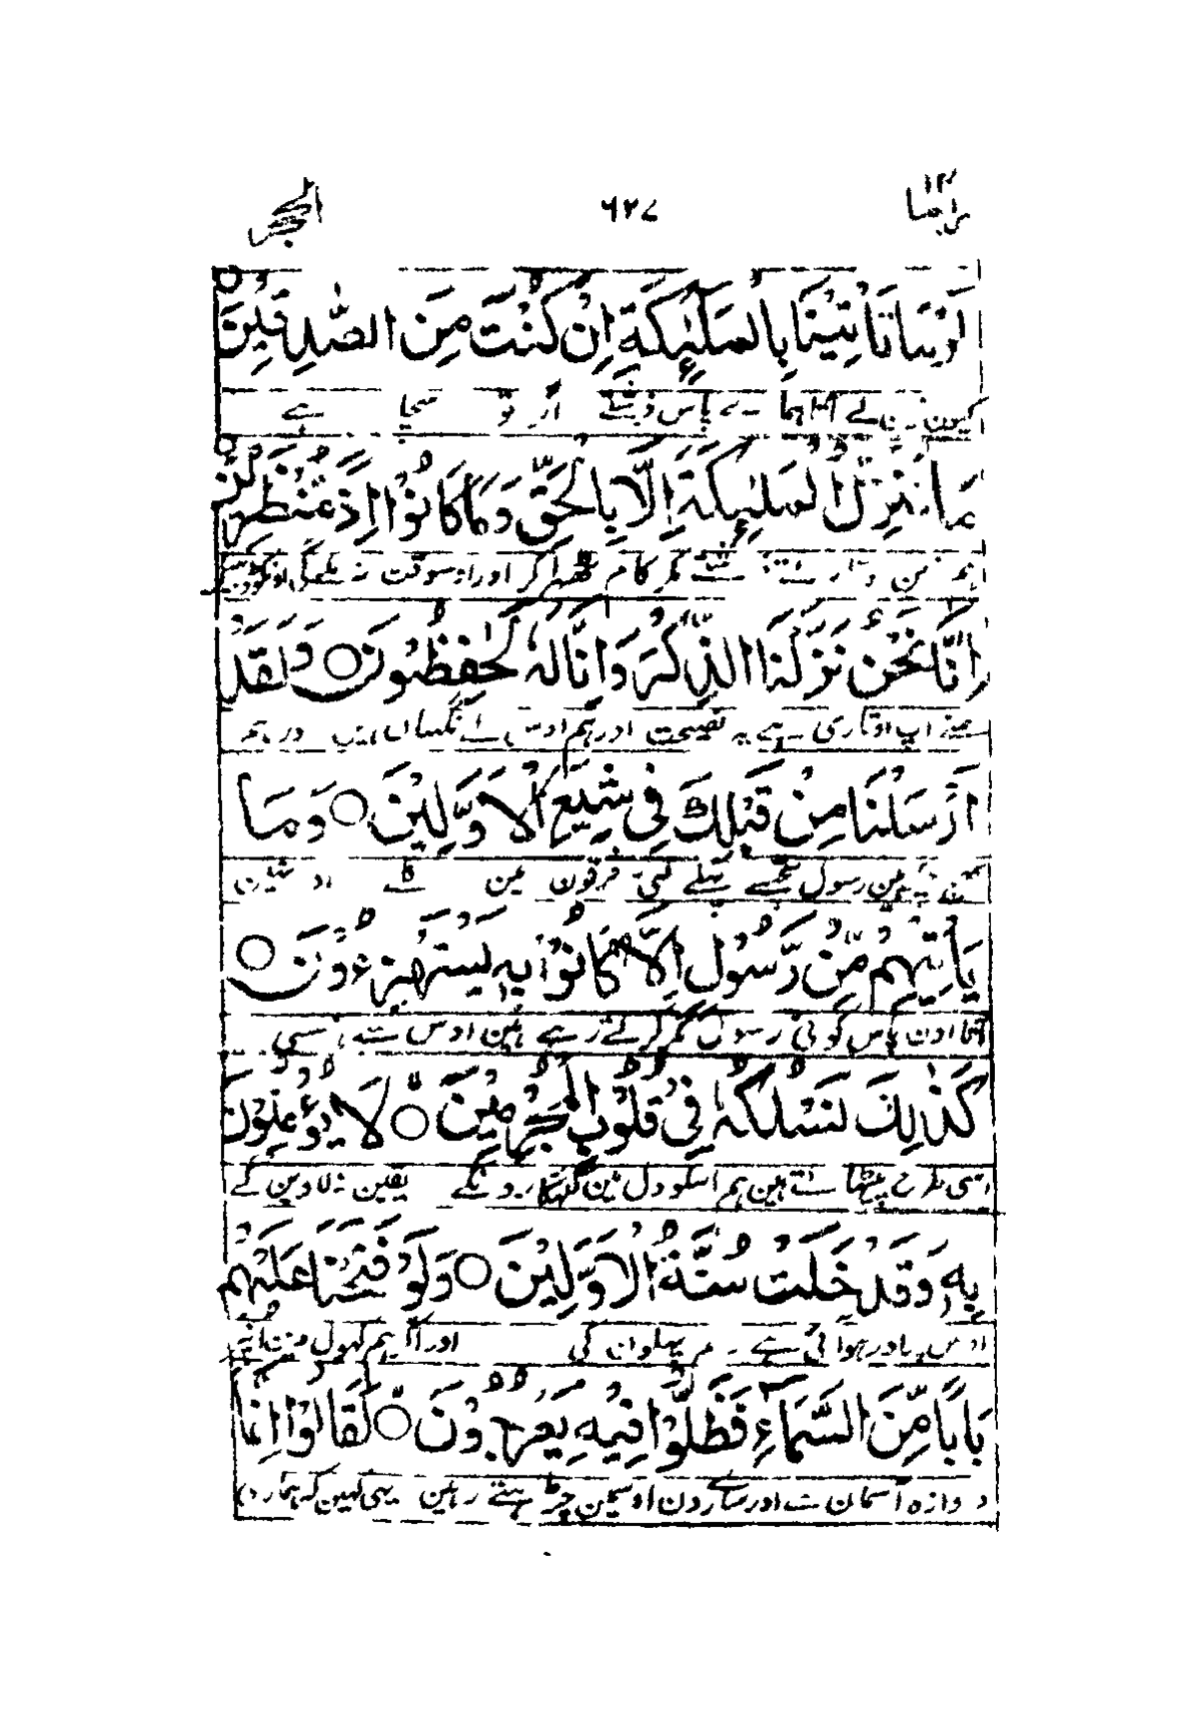 ربما ١٤ ٦٢٧ الحجر
لَوْمَا تَأْتِيْنَا بِالْمَلٰٓئِكَةِ اِنْ كُنْتَ مِنَ الصّٰدِقِيْنَ ○
کیون نہین لے آتا ہمارے پاس فرشتے اگر تو سچا ہے
مَا نُنَزِّلُ الْمَلٰٓئِكَةَ اِلَّا بِالْحَقِّ وَمَا كَانُوْا اِذًا مُّنْظَرِيْنَ ○
فرشتے مگر کام ٹھہرا کر اور اوسوقت نہ ملیگی
اِنَّا نَحْنُ نَزَّلْنَا الذِّكْرَ وَاِنَّا لَهٗ لَحٰفِظُوْنَ ○ وَلَقَدْ
ہمنے آپ اوتاری ہے یہ نصیحت اور ہم اوس کے نگہبان ہیں اور ہم
اَرْسَلْنَا مِنْ قَبْلِكَ فِيْ شِيَعِ الْاَوَّلِيْنَ ○ وَمَا
رسول تجھسے پہلے کئی فرقون مین کے
يَأْتِيْهِمْ مِّنْ رَّسُوْلٍ اِلَّا كَانُوْا بِهٖ يَسْتَهْزِءُوْنَ ○
آتا اون پاس کوئی رسول مگر کرتے رہے ہین اوس سے ہنسی
كَذٰلِكَ نَسْلُكُهٗ فِيْ قُلُوْبِ الْمُجْرِمِيْنَ ○ لَا يُؤْمِنُوْنَ
اسی طرح پیٹھاتے ہین ہم اسکو دل مین گنہگارون کے یقین نہ لاوین گے
بِهٖ وَقَدْ خَلَتْ سُنَّةُ الْاَوَّلِيْنَ ○ وَلَوْ فَتَحْنَا عَلَيْهِمْ
اوس پر اور ہو آئی ہے رسم پہلوان کی اور اگر ہم کھول دین اونپر
بَابًا مِّنَ السَّمَآءِ فَظَلُّوْا فِيْهِ يَعْرُجُوْنَ ○ لَقَالُوْٓا اِنَّمَا
دروازہ آسمان سے اور سارے دن اوسمین چڑہتے رہین یہی کہین کہ ہماری